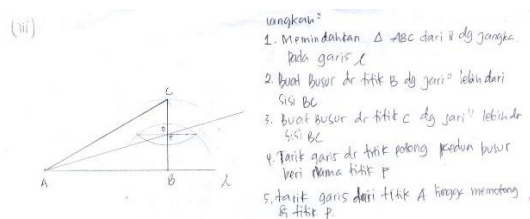 (iii)
langkah:
1. Memindahkan Δ ABC dari ii dg jangka
pada garis l
2. Buat Busur dr titik B dg jari² lebih dari
sisi BC
3. Buat Busur dr titik C dg jari" lebih dr
sisi BC
4. Tarik garis dr titik potong kedua busur
beri nama titik P
5. tarik garis dari titik A hingga memotong
titik P.
C
P
A
B
l